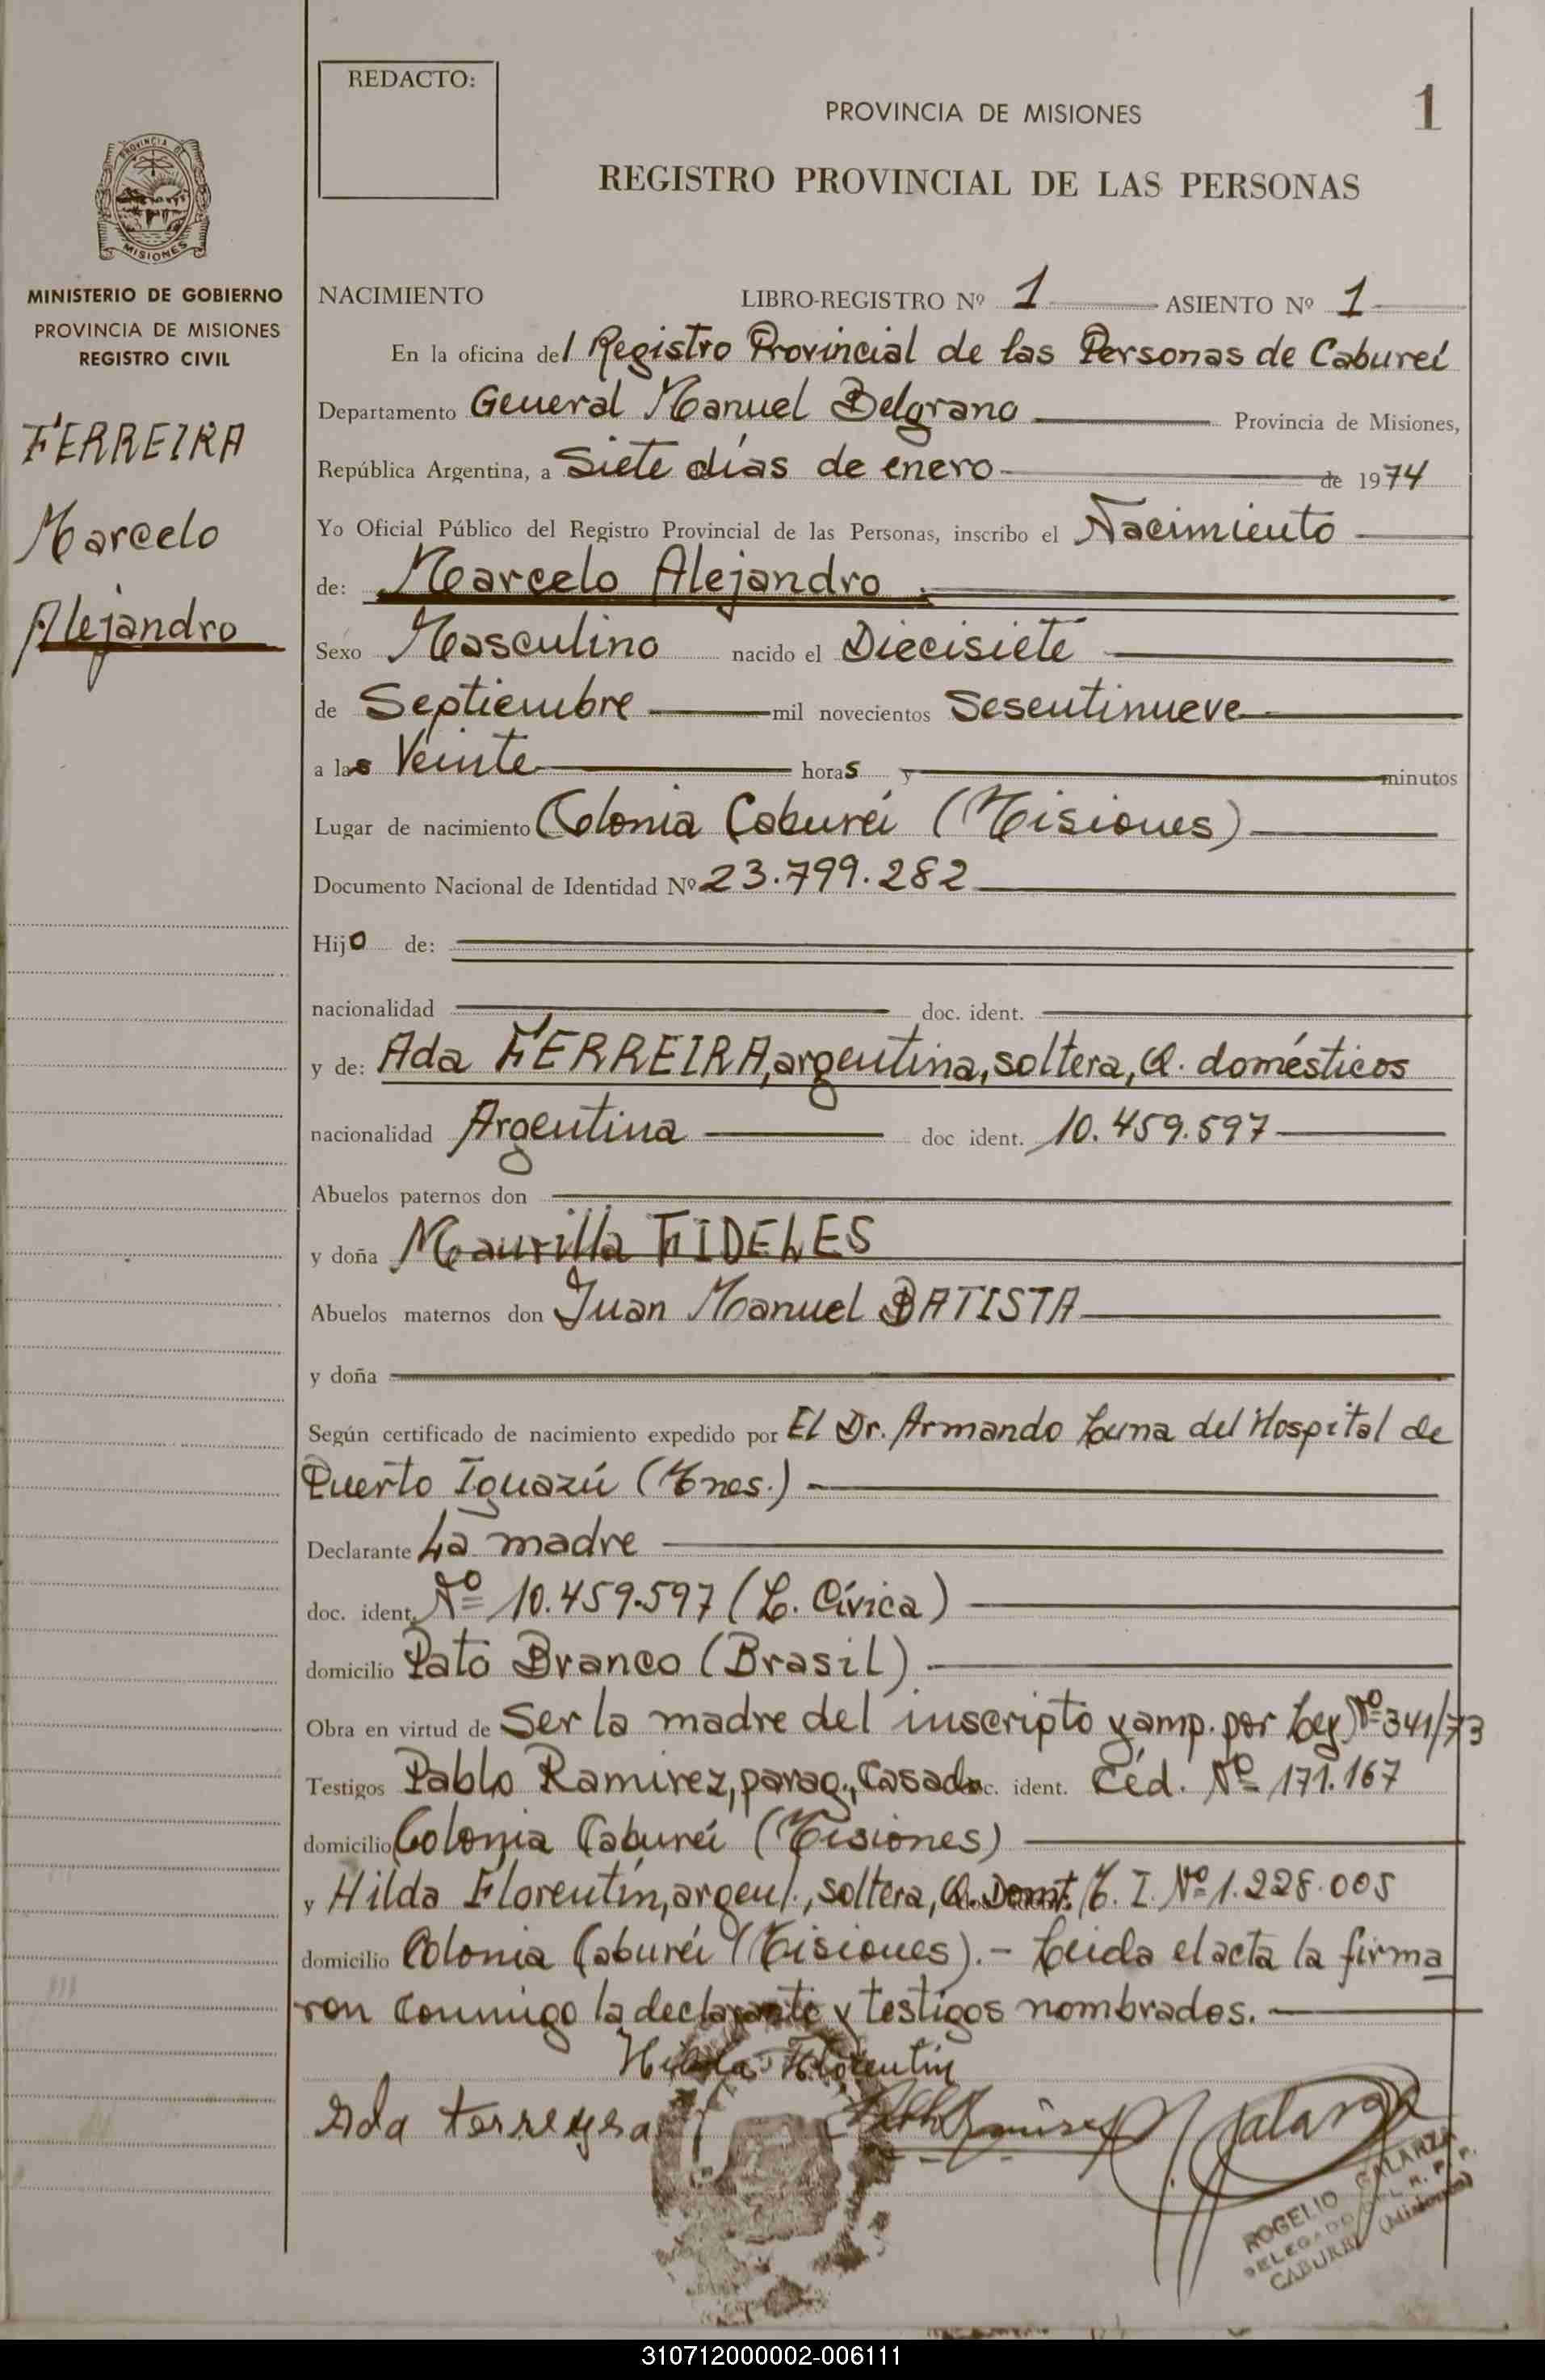 REDACTO:
1
PROVINCIA DE MISIONES
REGISTRO PROVINCIAL DE LAS PERSONAS
PROVINCIA DE
MISIONES
MINISTERIO DE GOBIERNO
PROVINCIA DE MISIONES
REGISTRO CIVIL
FERREIRA
Marcelo
Alejandro
NACIMIENTO LIBRO-REGISTRO Nº 1 ASIENTO Nº 1
En la oficina del Registro Provincial de las Personas de Cabureí
Departamento General Manuel Belgrano Provincia de Misiones,
República Argentina, a Siete días de enero de 1974
Yo Oficial Público del Registro Provincial de las Personas, inscribo el Nacimiento
de: Marcelo Alejandro
Sexo Masculino nacido el Diecisiete
de Septiembre mil novecientos Sesentinueve
a las Veinte horas y minutos
Lugar de nacimiento Colonia Cabureí (Misiones)
Documento Nacional de Identidad Nº 23.799.282
Hijo de:
nacionalidad doc. ident.
y de: Ada FERREIRA, argentina, soltera, Q. domésticos
nacionalidad Argentina doc ident. 10.459.597
Abuelos paternos don
y doña Maurilla FIDELES
Abuelos maternos don Juan Manuel BATISTA
y doña
Según certificado de nacimiento expedido por El Dr. Armando Luna del Hospital de
Puerto Iguazú (Mnes.)
Declarante La madre
doc. ident. Nº 10.459.597 (L. Cívica)
domicilio Pato Branco (Brasil)
Obra en virtud de Ser la madre del inscripto y amp. por Ley Nº 341/73
Testigos Pablo Ramirez, parag., Casado doc. ident. Céd. Nº 171.167
domicilio Colonia Cabureí (Misiones)
y Hilda Florentín, argent., soltera, Q. Domt. M. I. Nº 1.228.005
domicilio Colonia Cabureí (Misiones).- Leida el acta la firma
ron conmigo la declarante y testigos nombrados.
Hilda Florentin
Ada Ferreyra
Galarza
ROGELIO GALARZA
DELEGADO DEL R. P. P.
CABUREI (Misiones)
310712000002-006111